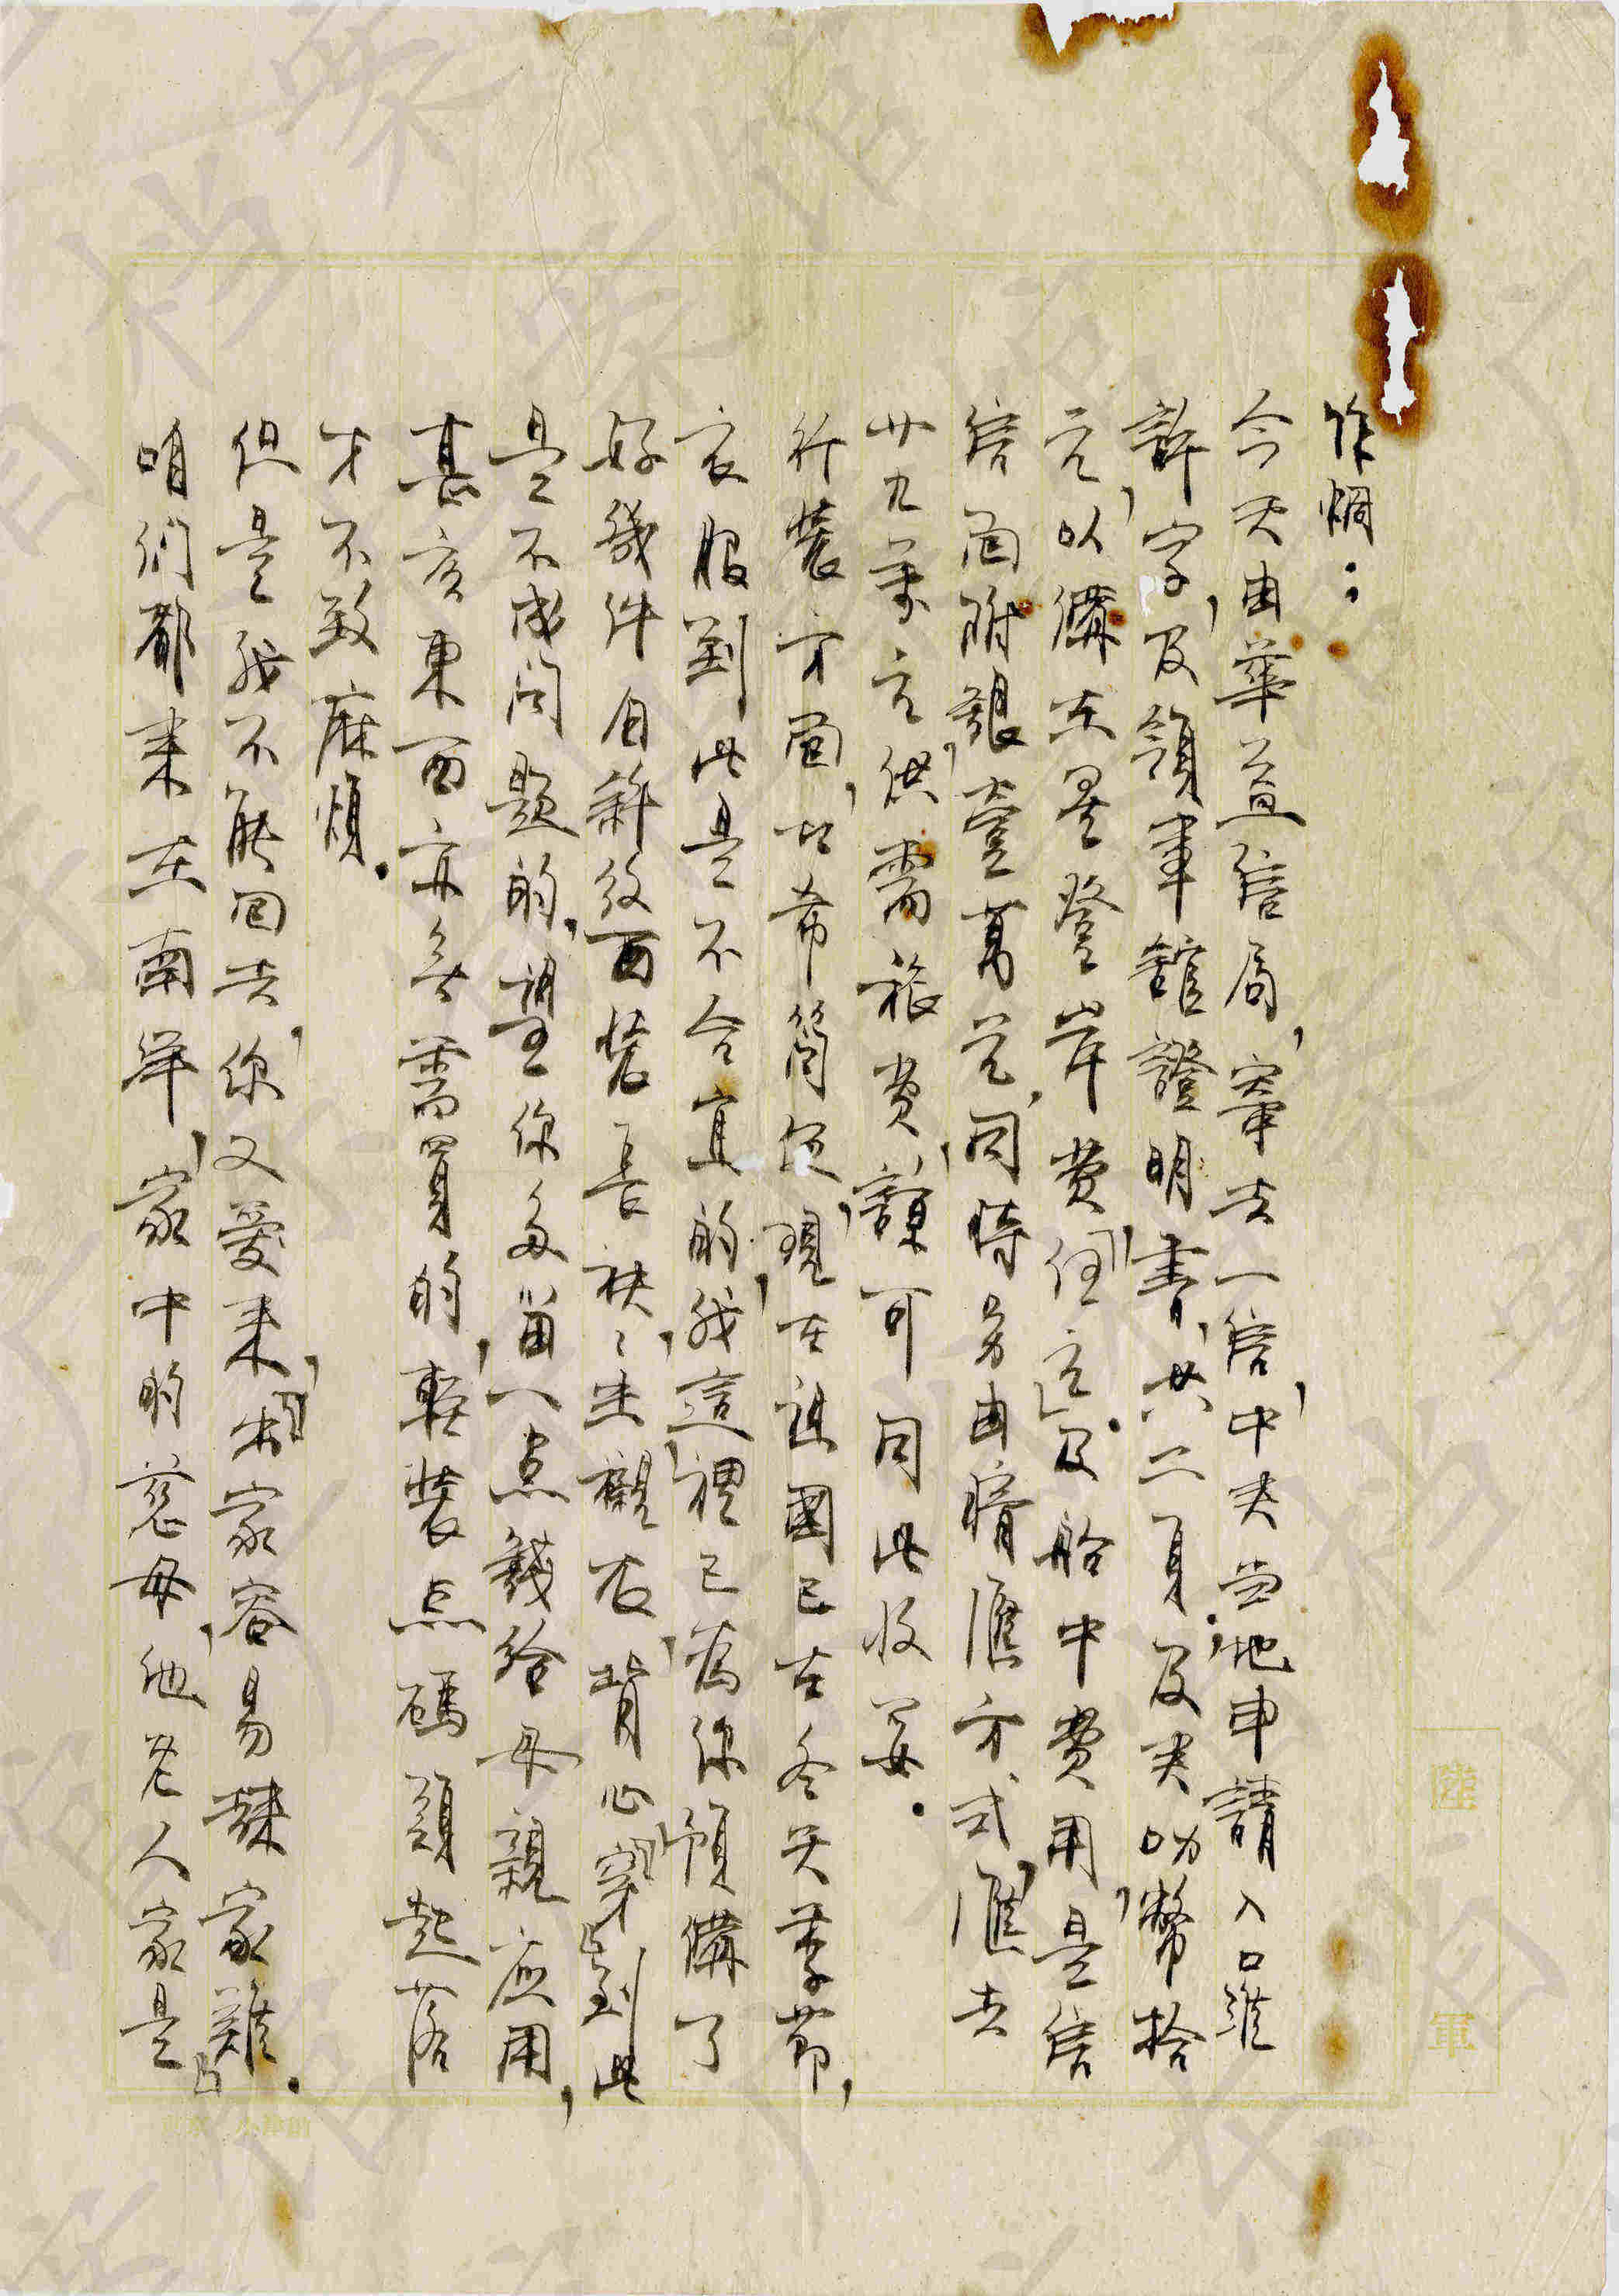 作惆：
今天由華益信局，寄去一信，中夾当地申請入口准
許字，及領事館證明書，共二頁。及夾叻幣拾
元，以備在星登岸費「任」之。及船中費用，是信
信面附銀壹萬元，同時另由暗滙方式滙去
廿九萬元，供需旅費，諒可同此收妥。
行裝方面，切希簡便，現在祖國已古冬天季節，
衣服到此是不合宜的，我這裡已為你預備了
好幾件自新紋西裝長衭，生襯衣，背心，穿到此
是不成問題的，望你多留一点錢給母親应用，
甚衣東西亦無需買的，輕裝点碼頭起落
才不致麻煩。
但是我不能回去，你又愛来，「出家容易歸家難」。
咱们都来在南洋，家中的慈母，他老人家是
陸
軍